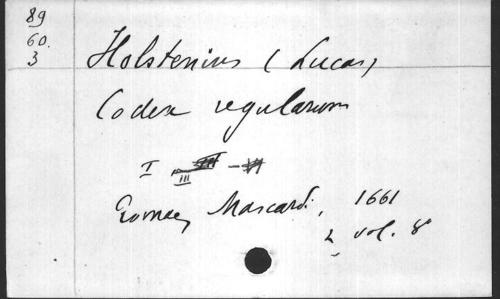 89
60.
3
Holstenius (Lucas)
Codex regularum
I
III
Romae, Mascardi, 1661
2 vol. 8°